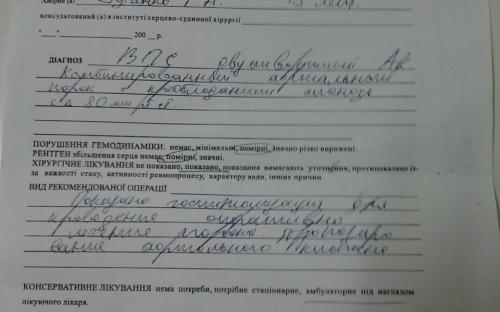 Хворий (а)
консультований (а) в інституті серцево-судинної хірургії
"__" 200__ р.
ДІАГНОЗ ВПС двустворчатый Ак
Комбинированный аортальный
порок с преобладанием стеноза
ПОРУШЕННЯ ГЕМОДИНАМІКИ: немає, мінімальні, помірні, значно різко виражені.
РЕНТГЕН збільшення серця немає, помірні, значні.
ХІРУРГІЧНЕ ЛІКУВАННЯ не показано, показано, показання вимагають уточнення, протипоказано із-
за важкості стану, активності ревмопроцесу, характеру вади, інших причин
ВИД РЕКОМЕНДОВАНОЇ ОПЕРАЦІЇ
Показана госпитализация для
проведения оперативного
лечения
аортального клапана
КОНСЕРВАТИВНЕ ЛІКУВАННЯ нема потреби, потрібне стаціонарне, амбулаторне під наглядом
лікуючого лікаря.